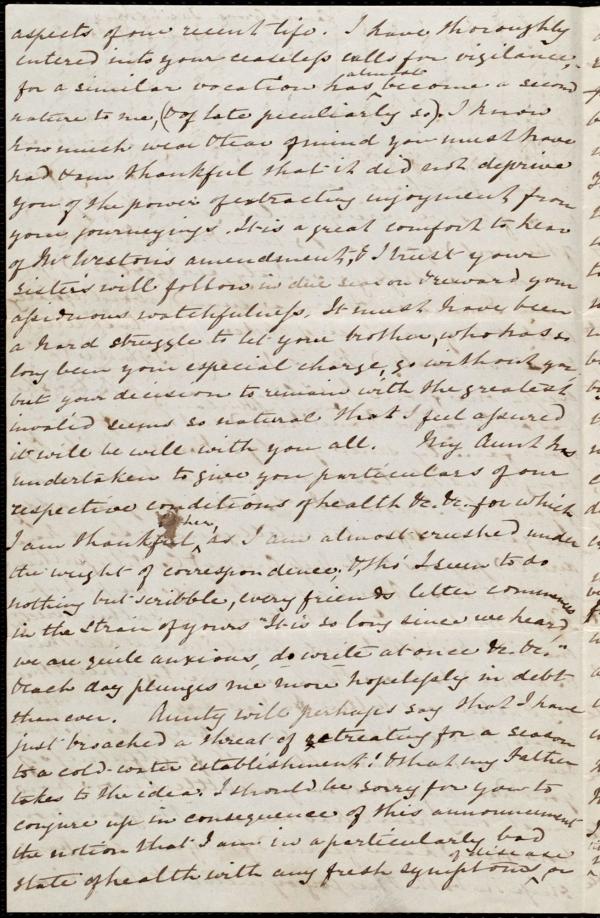 aspects of our recent life. I have thoroughly
entered into your ceaseless calls for vigilance,
for a similar vocation has ^almost become a second
nature to me, (& of late peculiarly so). I know
how much wear & tear of mind you must have
had & am thankful that it did not deprive
you of the power of extracting enjoyment from
your journeyings. It is a great comfort to hear
of Mr Weston's amendment, & I trust your
sisters will follow in due season & reward your
assiduous watchfulness. It must have been
a hard struggle to let your brother, who has so
long been your especial charge, go without you
but your decision to remain with the greatest
invalid seems so natural that I feel assured
it will be well with you all. My Aunt has
undertaken to give you particulars of our
respective conditions of health &c. &c. for which
I am thankful, ^her, as I am almost crushed under
the weight of correspondence; &, tho' I seem to do
nothing but scribble, every friend's letter commences
in the strain of yours "It is so long since we heard,
we are quite anxious, do write at once &c. &c."
& each day plunges me more hopelessly in debt
than ever. Aunty will perhaps say that I have
just broached a threat of retreating for a season
to a cold-water establishment! & that my Father
takes to the idea. I should be sorry for you to
conjure up in consequence of this announcement
the notion that I am in a particularly bad
state of health with any fresh symptoms ^of disease, or